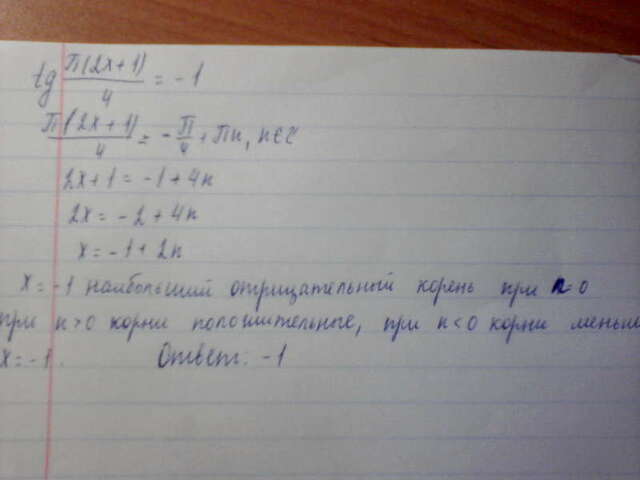 tg π(2x+1)/4 = -1
π(2x+1)/4 = -π/4 + πn, n∈Z
2x+1 = -1+4n
2x = -2+4n
x = -1+2n
x = -1 наибольший отрицательный корень при n=0
при n>0 корни положительные, при n<0 корни меньше
x = -1. Ответ: -1